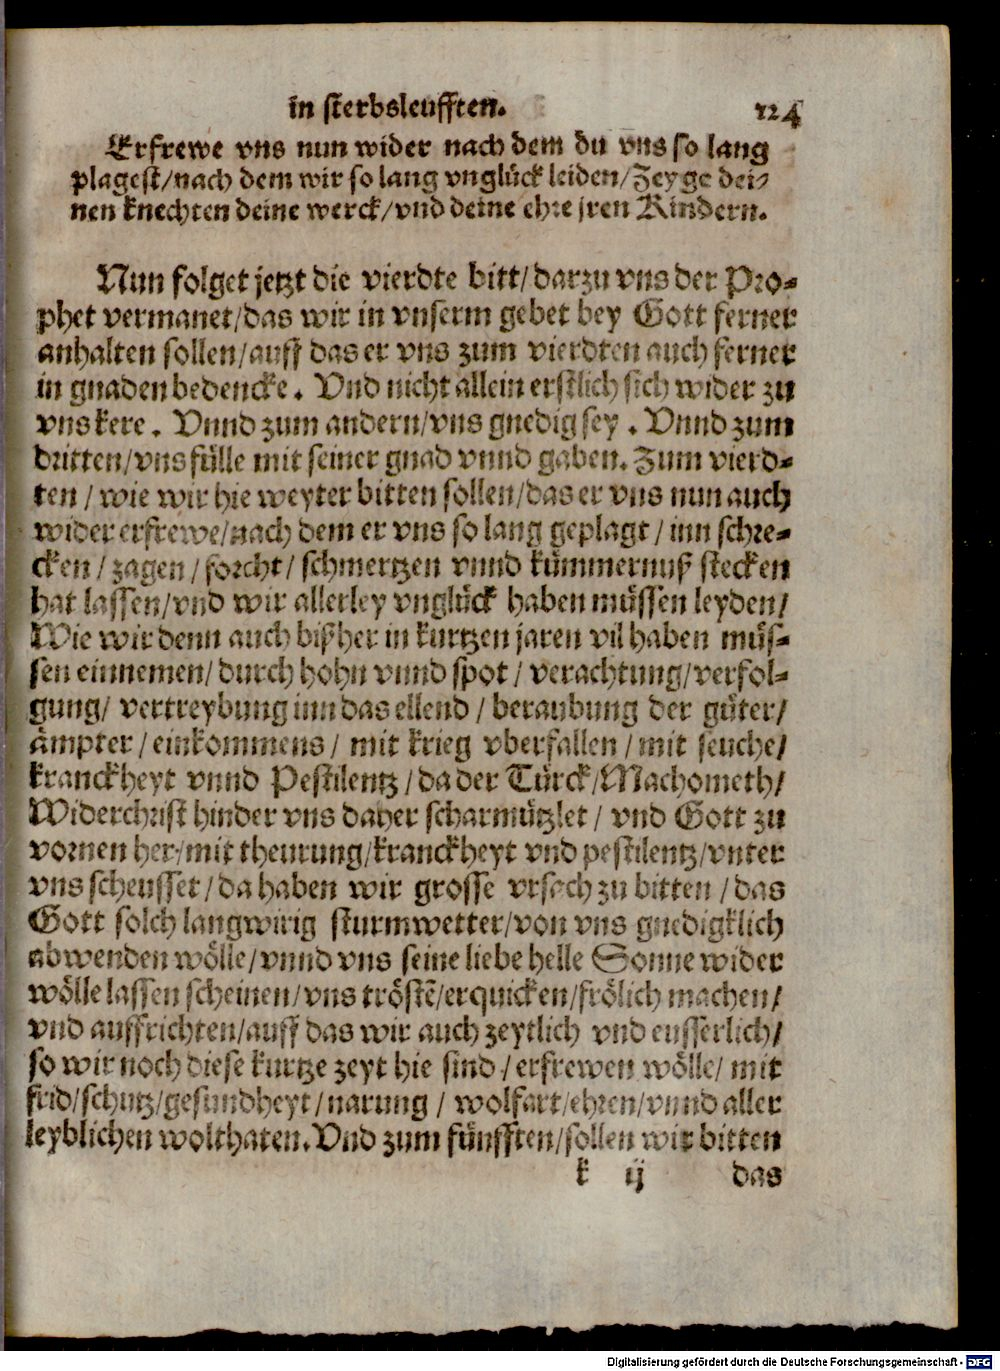 in sterbsleufften. 124
Erfrewe vns nun wider nach dem du vns so lang
plagest/nach dem wir so lang vnglück leiden/Zeyge dei-
nen knechten deine werck/vnd deine ehre jren Kindern.
Nun folget jetzt die vierdte bitt/darzu vns der Pro-
phet vermanet/das wir in vnserm gebet bey Gott ferner
anhalten sollen/auff das er vns zum vierdten auch ferner
in gnaden bedencke. Vnd nicht allein erstlich sich wider zu
vns kere. Vnnd zum andern/vns gnedig sey. Vnnd zum
dritten/vns fülle mit seiner gnad vnnd gaben. Zum vierd-
ten/wie wir hie weyter bitten sollen/das er vns nun auch
wider erfrewe/nach dem er vns so lang geplagt/inn schre-
cken/zagen/forcht/schmertzen vnnd kümmernuß stecken
hat lassen/vnd wir allerley vnglück haben müssen leyden/
Wie wir denn auch bißher in kurtzen jaren vil haben müs-
sen einnemen/durch hohn vnnd spot/verachtung/verfol-
gung/vertreybung inn das ellend/beraubung der güter/
ämpter/einkommens/mit krieg vberfallen/mit seuche/
kranckheyt vnnd Pestilentz/da der Türck/Machometh/
Widerchrist hinder vns daher scharmützlet/vnd Gott zu
vornen her/mit theurung/kranckheyt vnd pestilentz/vnter
vns scheusset/da haben wir grosse vrsach zu bitten/das
Gott solch langwirig sturmwetter/von vns gnedigklich
abwenden wölle/vnnd vns seine liebe helle Sonne wider
wölle lassen scheinen/vns tröstē/erquicken/frölich machen/
vnd auffrichten/auff das wir auch zeytlich vnd eusserlich/
so wir noch diese kurtze zeyt hie sind/erfrewen wölle/mit
frid/schutz/gesundheyt/narung/wolfart/ehren/vnnd aller
leyblichen wolthaten. Vnd zum fünfften/sollen wir bitten
k ij das
Digitalisierung gefördert durch die Deutsche Forschungsgemeinschaft - DFG